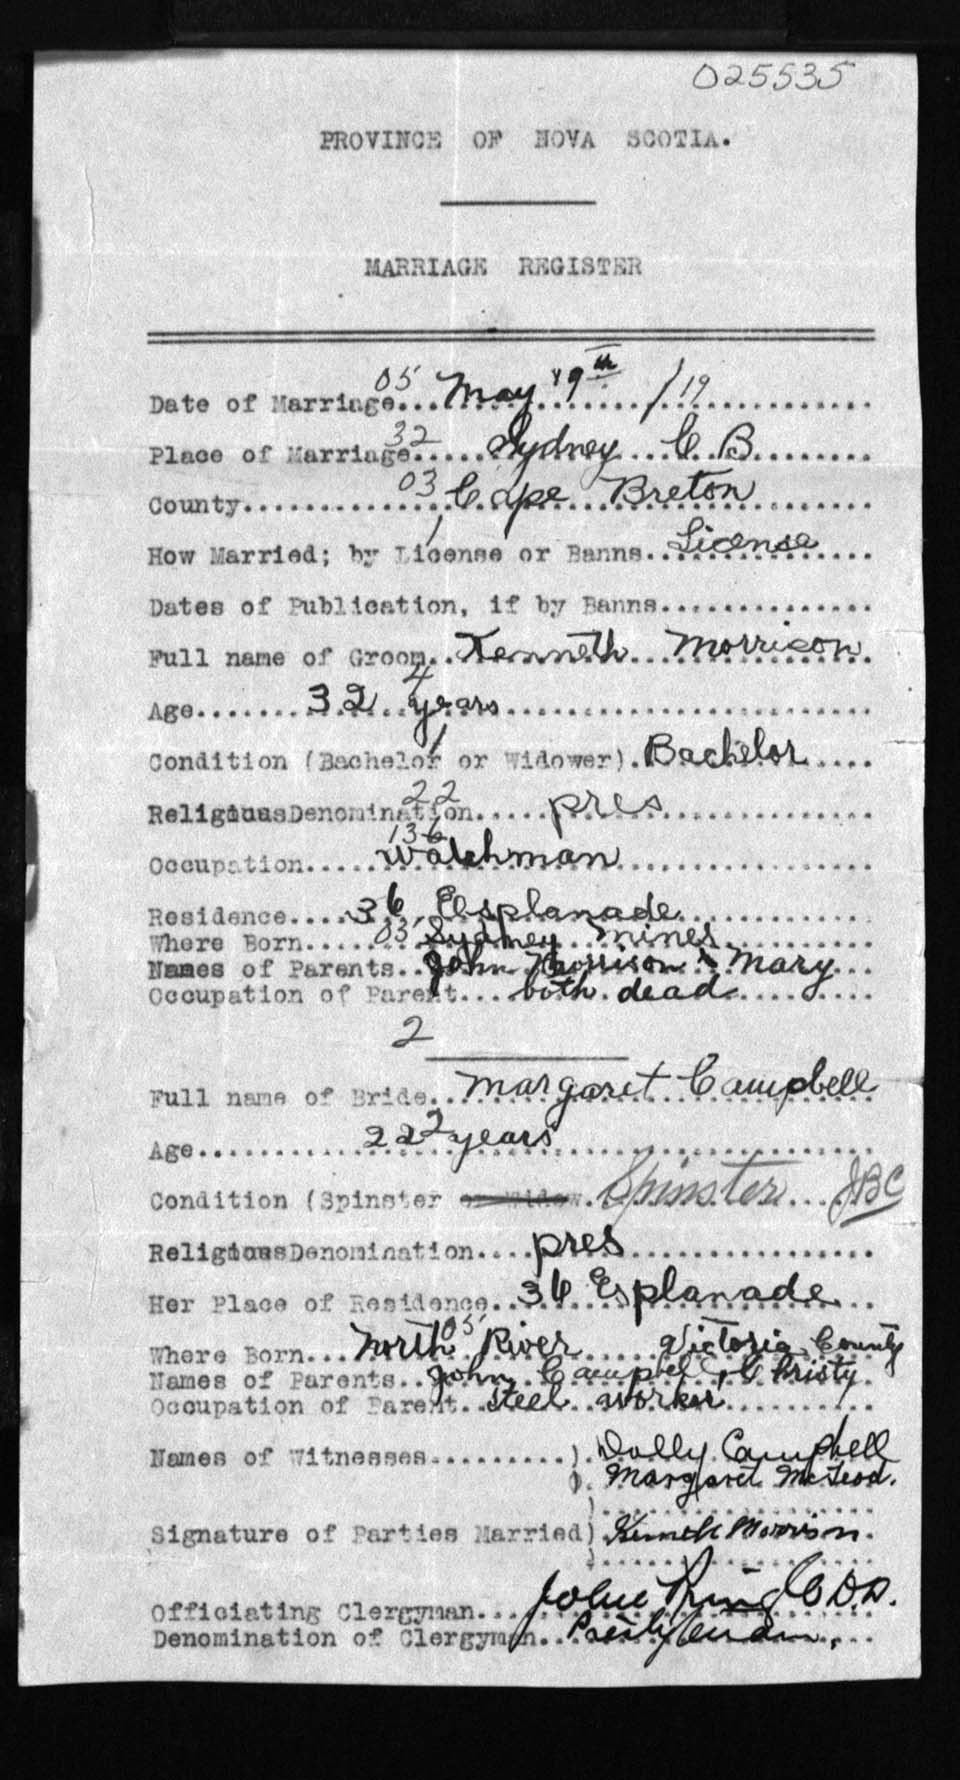 025535
PROVINCE OF NOVA SCOTIA.
MARRIAGE REGISTER
05
Date of Marriage... May 19th /19
32
Place of Marriage..... Sydney C B
03
County............ Cape Breton
1
How Married; by License or Banns.. License
Dates of Publication, if by Banns..............
Full name of Groom.. Kenneth Morrison
4
Age....... 32 years
1
Condition (Bachelor or Widower). Bachelor
22
Religious Denomination..... pres
136
Occupation..... Watchman
Residence.... 36 Esplanade
Where Born....... 03 Sydney Mines
Names of Parents.. John Morrison & Mary
Occupation of Parent.... both dead
2
Full name of Bride.. Margaret Campbell
2
Age........ 22 years
Condition (Spinster or Widow. Spinster... JBC
Religious Denomination.... pres
Her Place of Residence.. 36 Esplanade
05
Where Born... North River Victoria County
Names of Parents.. John Campbell & Christy
Occupation of Parent.. Steel worker
Names of Witnesses.........). Dolly Campbell
). Margaret McLeod.
Signature of Parties Married) Kenneth Morrison
Officiating Clergyman... John Pringle D.D.
Denomination of Clergyman.. Presbyterian.